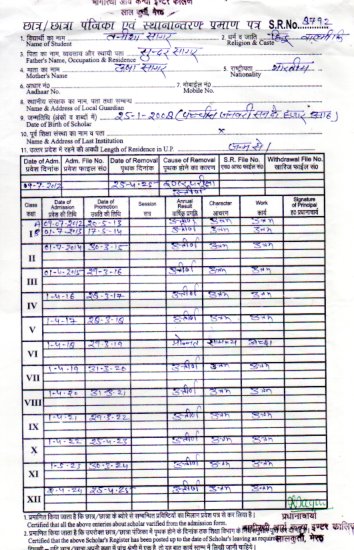 भागीरथी आर्य कन्या इण्टर कालेज
लाल कुर्ती, मेरठ
छात्र/छात्रा पंजिका एवं स्थानान्तरण प्रमाण पत्र S.R.No. 9792
1. विद्यार्थी का नाम
Name of Student
2. धर्म व जाति हिन्दू वाल्मीकि
Religion & Caste
3. पिता का नाम, व्यवसाय और स्थायी पता सुन्दर सागर
Father's Name, Occupation & Residence
4. माता का नाम सागर
Mother's Name
5. राष्ट्रीयता भारतीय
Nationality
6. आधार नं०
Aadhaar No.
7. मोबाईल नं०
Mobile No.
8. स्थानीय संरक्षक का नाम, पता तथा सम्बन्ध
Name & Address of Local Guardian
9. जन्मतिथि (अंकों व शब्दों में) 25-1-2008 (पच्चीस जनवरी सन् दो हजार आठ)
Date of Birth of Scholar
10. पूर्व शिक्षा संस्था का नाम व पता X
Name & Address of Last Institution
11. उत्तर प्रदेश में रहने की अवधी Length of Residence in U.P. जन्म से।
Date of Adm. Adm. File No. Date of Removal Cause of Removal S.R. File No. Withdrawal File No.
प्रवेश दिनांक प्रवेश फाइल सं० पृथक दिनांक पृथक होने का कारण एस०आर० फाईल सं० खारिज फाईल सं०
09-7-2012 25-4-25
Class Date of Admission Date of Promotion Session Annual Result Character Work Signature of Principal
कक्षा प्रवेश की तिथि उन्नति की तिथि सत्र वार्षिक प्रगति आचरण कार्य ह० प्रधानाचार्य
A 09-07-2012 30-3-13 उत्तीर्ण उत्तम उत्तम
I B 01-7-2013 17-5-14 उत्तीर्ण उत्तम उत्तम
II 01-7-2014 30-3-15 उत्तीर्ण उत्तम उत्तम
III 01-4-2015 29-3-16 उत्तीर्ण उत्तम उत्तम
IV 1-4-16 28-3-17 उत्तीर्ण उत्तम उत्तम
V 1-4-17 28-3-18 उत्तीर्ण उत्तम उत्तम
VI 1-4-18 29-3-19 प्रोन्नत सामान्य अच्छा
VII 1-4-19 31-3-20 उत्तीर्ण उत्तम उत्तम
VIII 1-4-20 31-3-21 उत्तीर्ण उत्तम उत्तम
IX 1-4-21 29-3-22 उत्तीर्ण उत्तम उत्तम
X 1-4-22 25-4-23 उत्तीर्ण उत्तम उत्तम
XI 1-5-23 30-3-24 उत्तीर्ण उत्तम उत्तम
XII 25-4-25 उत्तीर्ण उत्तम उत्तम
प्रधानाचार्या
भागीरथी आर्य कन्या इण्टर कालेज
लालकुर्ती, मेरठ
1. प्रमाणित किया जाता है कि छात्र/छात्रा के ब्योरे से सम्बन्धित प्रविष्टियों का मिलान प्रवेश पत्र से कर लिया है।
Certified that all the above entries about scholar varified from the admission form.
2. प्रमाणित किया जाता है कि उपरोक्त छात्र/छात्रा पंजिका में पृथक होने के दिनांक तक
Certified that the above Scholar's Register has been posted up to the date of Scholar's leaving as required